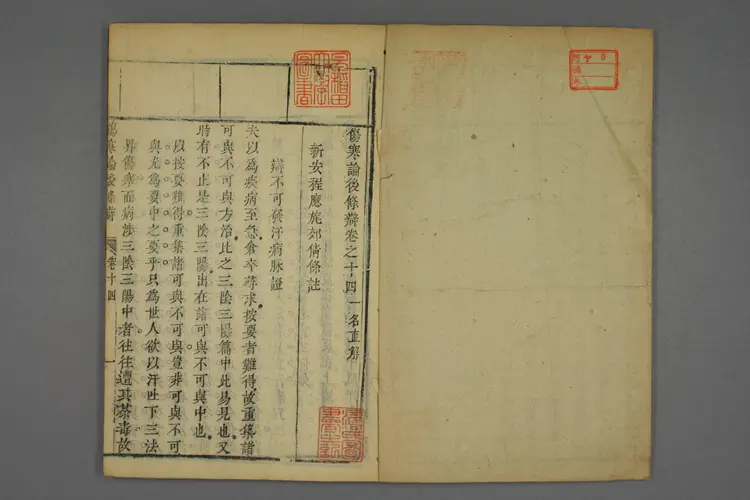 傷寒論後條辯卷之十四 一名直解
新安程應旄郊倩條註
辯不可發汗病脉證
夫以為疾病至急倉卒尋求按要者難得故重集諸
可與不可與方治比之三陰三陽篇中此易見也又
時有不止是三陰三陽出在諸可與不可與中也
以按要難得重集諸可與不可與豈非可與不可
與尤為要中之要乎只為世人欲以汗吐下三法
界傷寒而病涉三陰三陽中者往往遭其荼毒故
傷寒論後條辯 卷十四 一
早稻田大學圖書